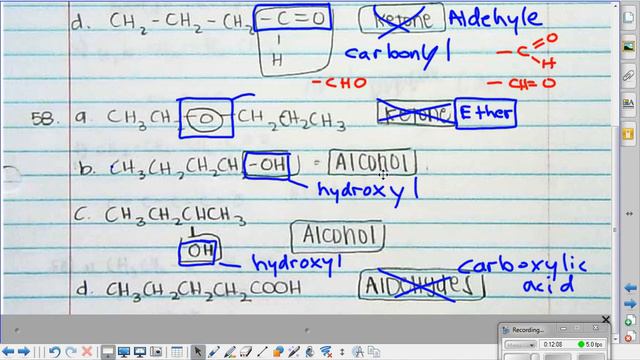 d. CH₂-CH₂-CH₂-C=O Ketone Aldehyle
H carbonyl -C=O H
-CHO -CH=O
58. a. CH₃CH-O-CH₂CH₂CH₃ Ketone Ether
b. CH₃CH₂CH₂CH-OH = Alcohol
hydroxyl
c. CH₃CH₂CHCH₃
OH Alcohol
hydroxyl carboxylic
d. CH₃CH₂CH₂CH₂COOH Aldehydes acid
Recording...
0:12:08 5.0 fps